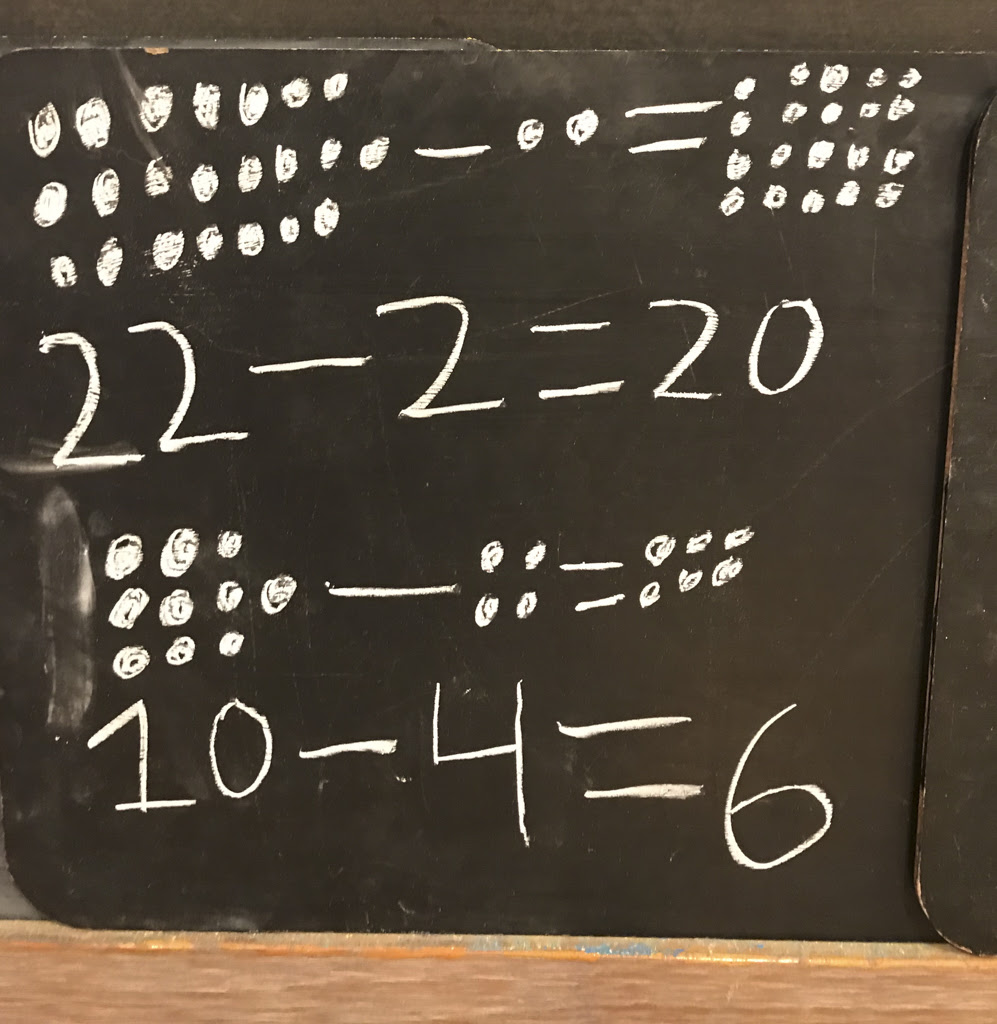 22 − 2 = 20
10 − 4 = 6